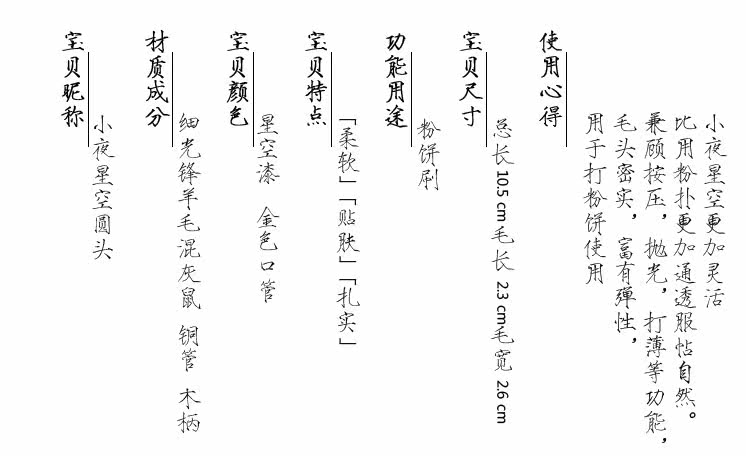 宝贝昵称
小夜星空圆头
材质成分
细光锋羊毛混灰鼠 铜管 木柄
宝贝颜色
星空漆 金色口管
宝贝特点
「柔软」「贴肤」「扎实」
功能用途
粉饼刷
宝贝尺寸
总长 10.5 cm 毛长 2.3 cm毛宽 2.6 cm
使用心得
用于打粉饼使用
毛头密实，富有弹性，
兼顾按压，抛光，打薄等功能，
比用粉扑更加通透服帖自然。
小夜星空更加灵活